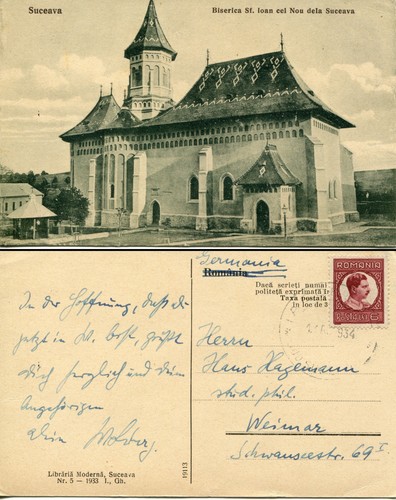 Suceava
Biserica Sf. Ioan cel Nou dela Suceava
Germania
România
Dacă scrieți numai
politeță exprimată în
Taxa postală
în loc de 3
ROMANIA
934
In der Hoffnung, daß Du
jetzt in W. bist, grüßt
Dich herzlich und Deine
Angehörigen
Dein
Herrn
Hans Hagemann
stud. phil.
Weimar
Schwanseestr. 69 I.
Librăria Modernă, Suceava
Nr. 5 - 1933 I., Gh.
19113